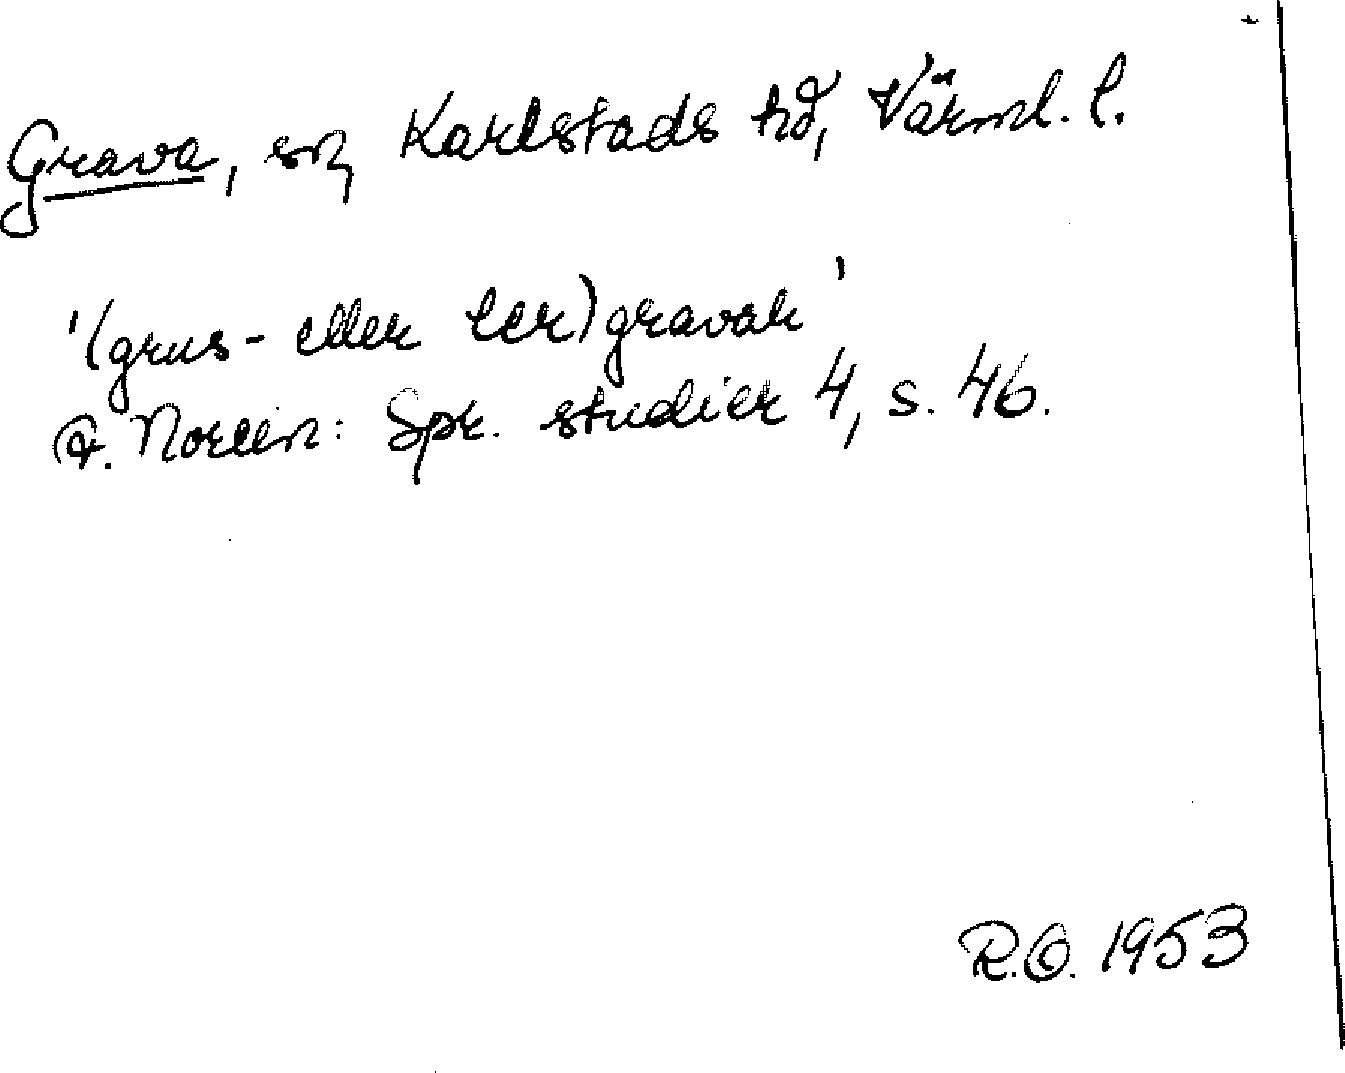 Grava, sn, Karlstads hd, Värml. l.
'(grus- eller ler)gravar'
A. Noreen: Spr. studier 4, s. 46.
R.O. 1953